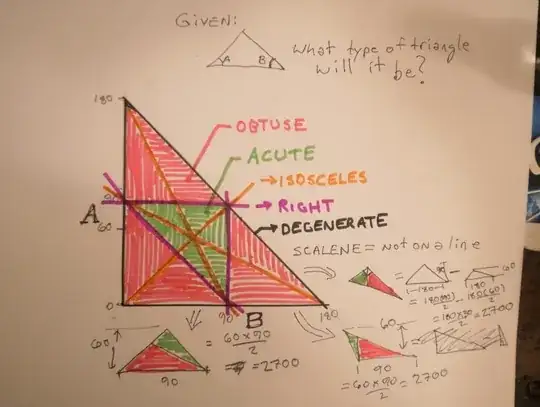 GIVEN:
A B
What type of triangle
will it be?
180
OBTUSE
ACUTE
→ISOSCELES
→RIGHT
→DEGENERATE
A
60
0
90
B
180
SCALENE = not on a line
60
90
= 60×90
2
= 2700
90
60
180
180
= 180(90)
2
- 180(60)
2
= 180×30
2
= 2700
60
90
= 60×90
2
= 2700